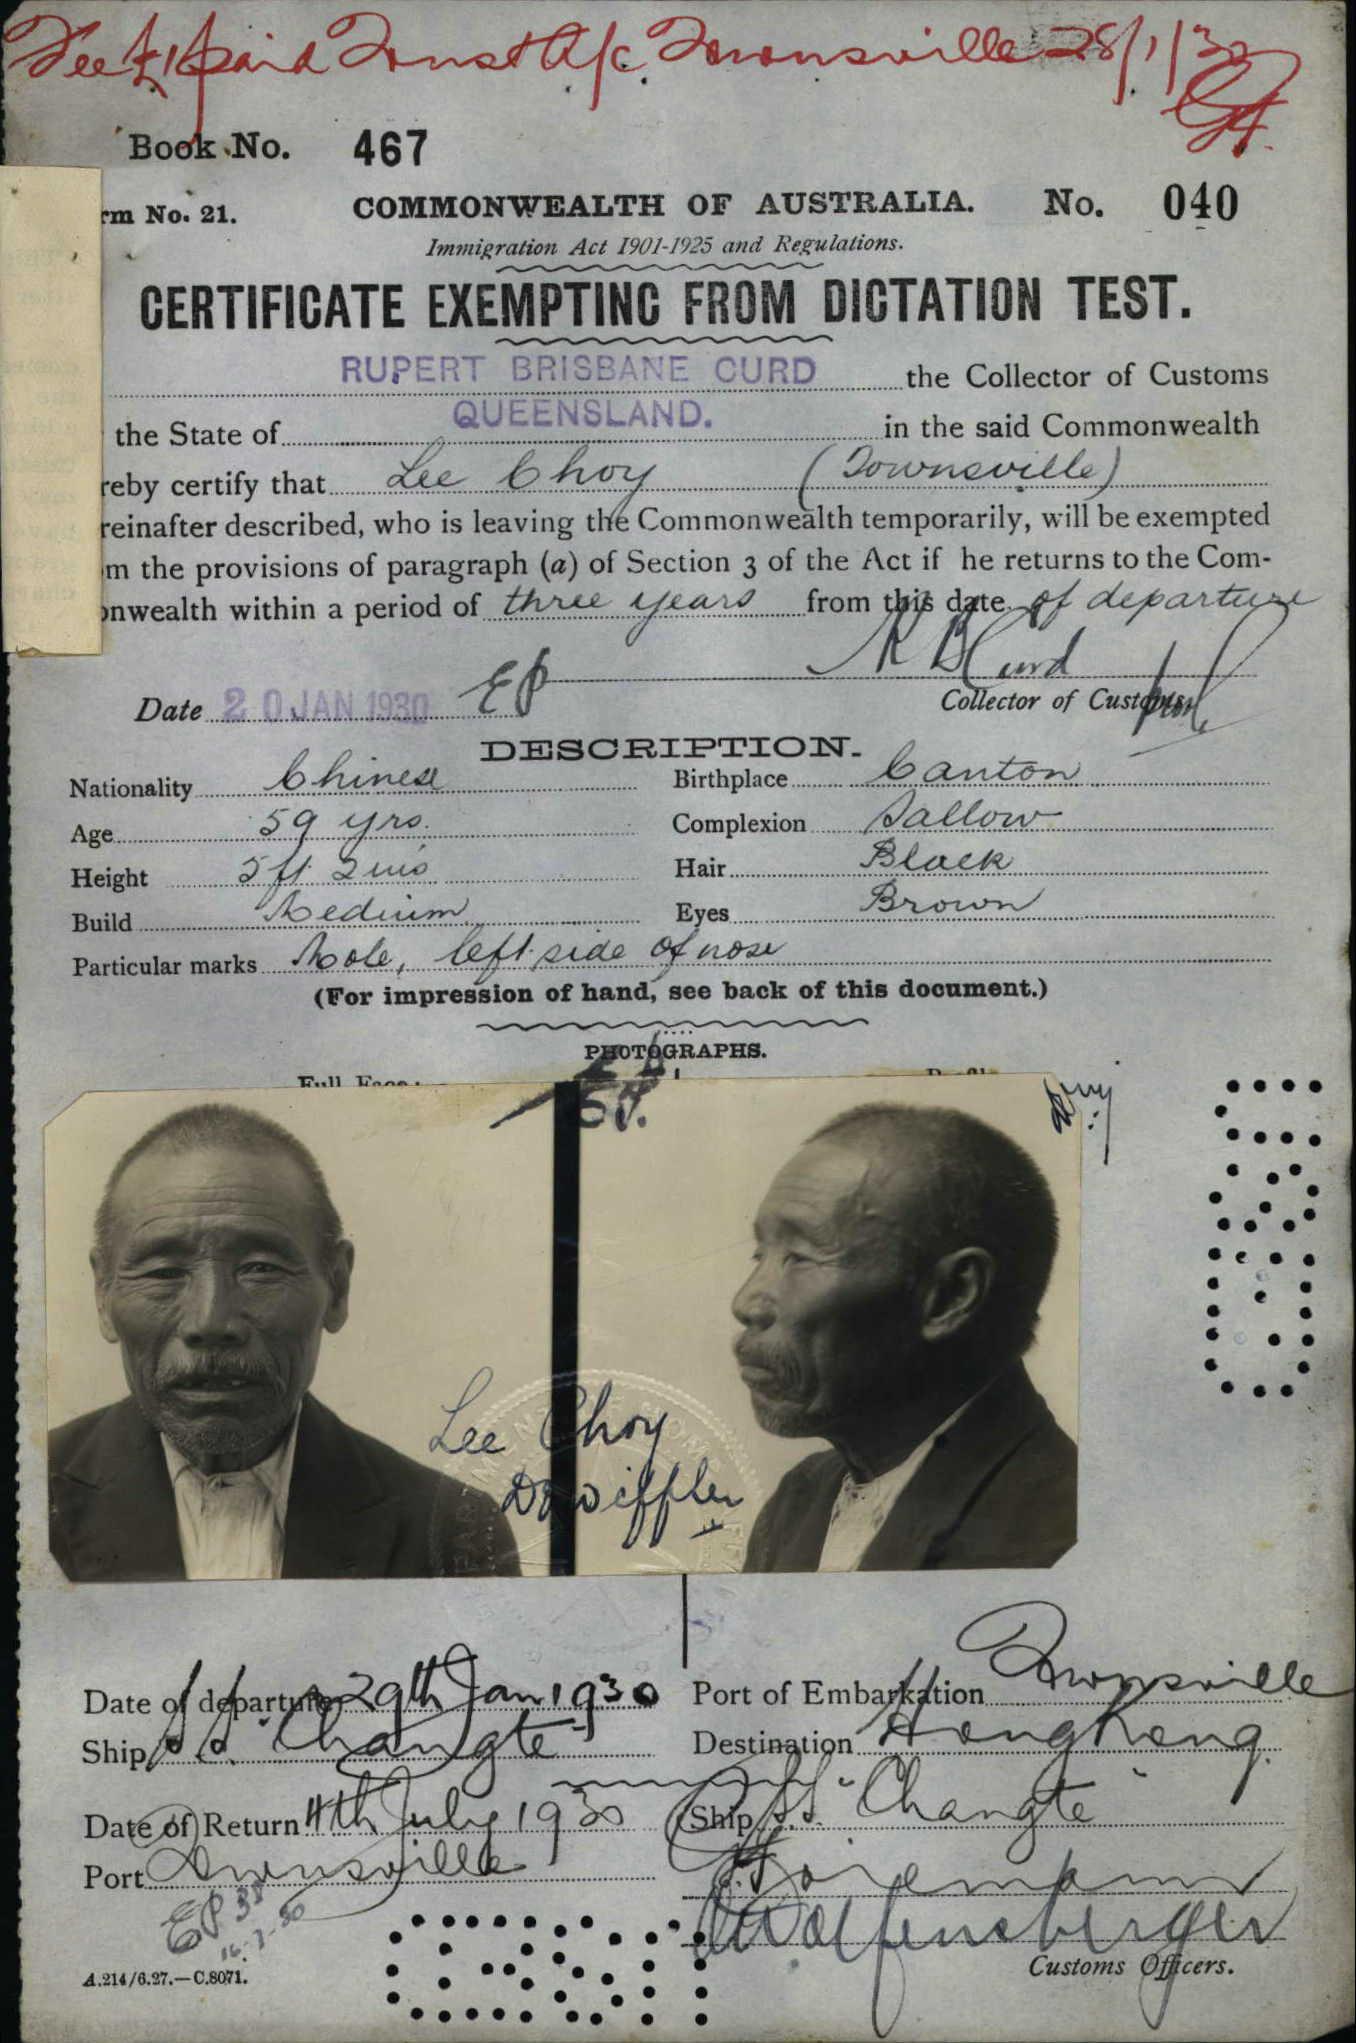 Fee £1 paid Trust A/c Townsville 28/1/30
Book No. 467
rm No. 21. COMMONWEALTH OF AUSTRALIA. No. 040
Immigration Act 1901-1925 and Regulations.
CERTIFICATE EXEMPTING FROM DICTATION TEST.
RUPERT BRISBANE CURD the Collector of Customs
the State of QUEENSLAND. in the said Commonwealth
reby certify that Lee Choy (Townsville)
reinafter described, who is leaving the Commonwealth temporarily, will be exempted
m the provisions of paragraph (a) of Section 3 of the Act if he returns to the Com-
onwealth within a period of three years from this date of departure
R B Curd
Date 20 JAN 1930 EP Collector of Customs
DESCRIPTION.
Nationality Chinese Birthplace Canton
Age 59 yrs. Complexion Sallow
Height 5 ft 2 ins Hair Black
Build Medium Eyes Brown
Particular marks Mole, left side of nose
(For impression of hand, see back of this document.)
PHOTOGRAPHS.
Full Face:
Lee Choy
Date of departure 29th Jan 1930 Port of Embarkation Townsville
Ship s.s. "Changte" Destination Hong Kong.
Date of Return 4th July 1930 Ship S.S. "Changte"
Port Townsville
EP 38
16-7-30
Customs Officers.
A.214/6.27.—C.8071.